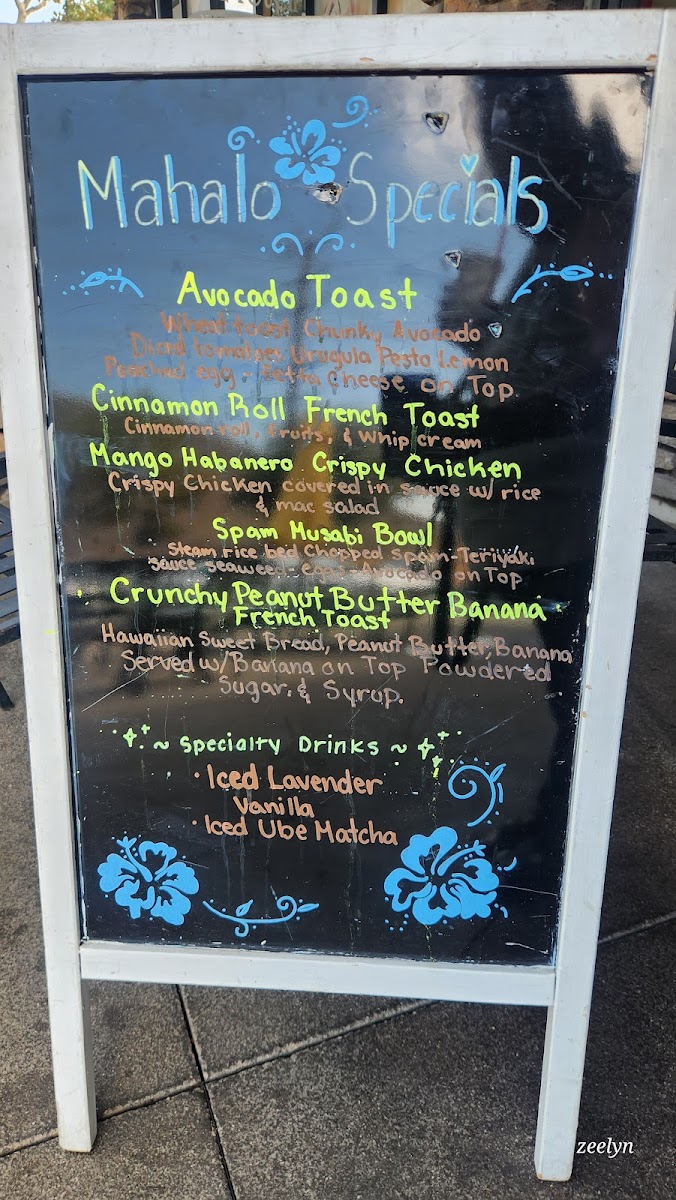 Mahalo Specials
Avocado Toast
Wheat toast Chunky Avocado
Diced tomatoes Urugula Pesto Lemon
Poached egg - Fetta Cheese on Top
Cinnamon Roll French Toast
Cinnamon roll, Fruits, & Whip cream
Mango Habanero Crispy Chicken
Crispy Chicken covered in sauce w/ rice
& mac salad
Spam Musabi Bowl
Steam rice bed Chopped Spam-Teriyaki
sauce seaweed Avocado on Top
Crunchy Peanut Butter Banana
French Toast
Hawaiian Sweet Bread, Peanut Butter, Banana
Served w/ Banana on Top Powdered
Sugar. & Syrup.
~ Specialty Drinks ~
· Iced Lavender
Vanilla
· Iced Ube Matcha
zeelyn